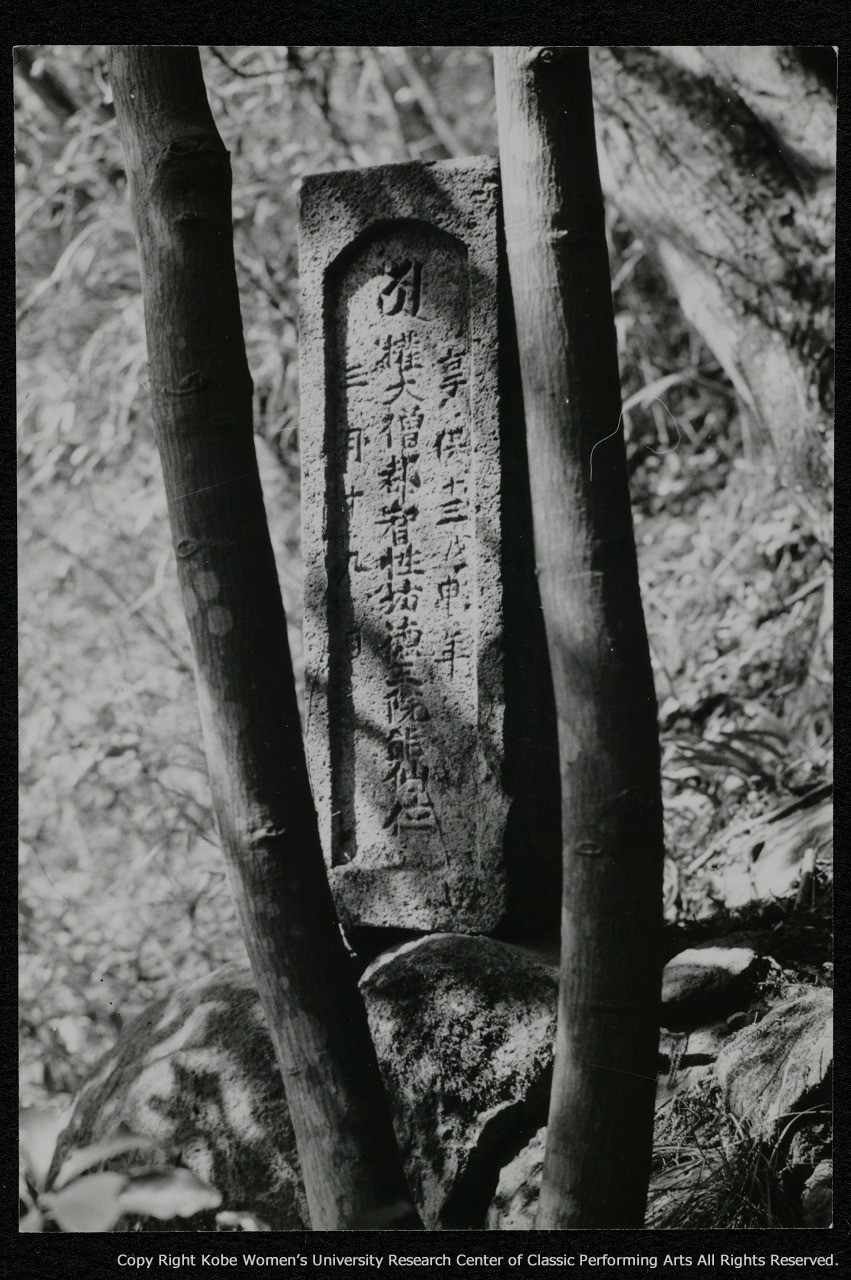 享保十三戊申年
權大僧都智性坊德王院能仙位
三月廿九日
Copy Right Kobe Women's University Research Center of Classic Performing Arts All Rights Reserved.